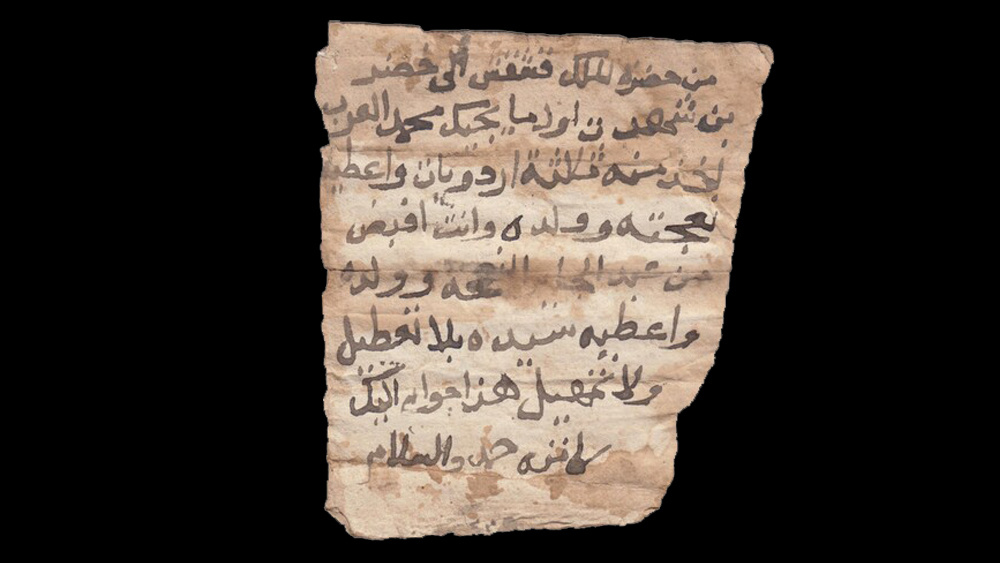 من حضرة الملك قشقش الى خضر
بن شهد ن اول ما يجيك محمد العرب
اخذ منه ثلاثة اردويات واعطيه
نعجته وولده وانت اقبض
من عبد الجابر النعجه وولده
واعطيه سيده بلا تعطيل
ولا تمهيل هذا جوابي اليك
كاتبه حمد والسلام